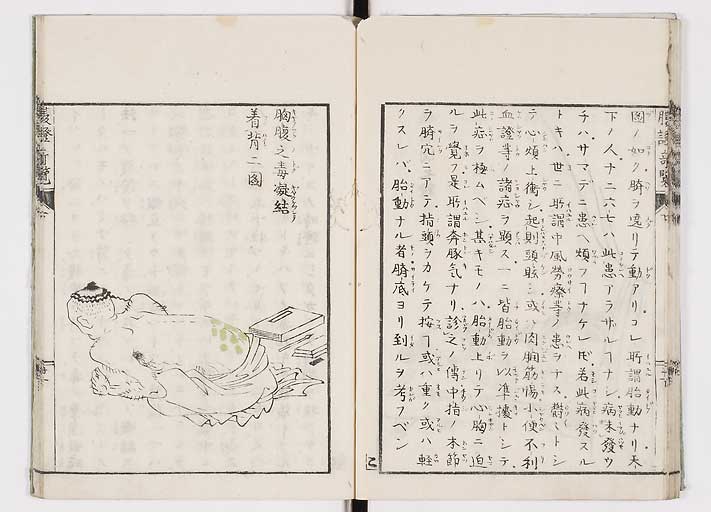 図ノ如ク臍ヲ遶リテ動アリコレ所謂胎動ナリ天
下ノ人十ニ六七ハ此患アラザルフナシ病未發ウ
チハサマデニ患ヘ煩フフナケレ𪜈若此病發スル
トキハ世ニ所謂中風勞療等ノ患ヲナス欝々トシ
テ心煩上衝シ起則頭眩シ或ハ肉瞤筋惕小便不利
血證等ノ諸症ヲ顕ス一ニ皆胎動ヲ以準擾トシテ
此症ヲ極ムベシ其キモノハ胎動上リテ心胸ニ迫
ルヲ覺フ是所謂奔豚気ナリ診之ノ傳中指ノ本節
ヲ臍穴ニアテ指頭ヲカケテ按下或ハ重ク或ハ軽
クスレバ胎動ナル者臍底ヨリ到ルヲ考フベシ
胸腹之毒凝結
着背二図